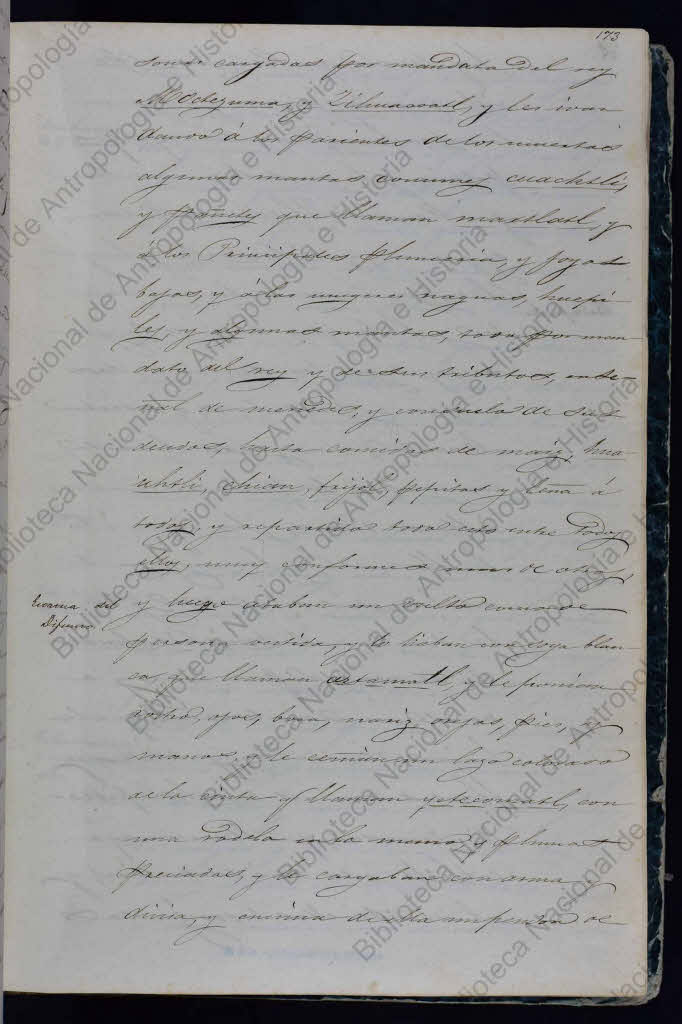 173
cargadas por mandato del rey
Moctezuma, y Zihuacoatl, y les ivan
dando á los parientes de los muertos
algunas mantas comunes cuachtli,
y pañetes que llaman maxtlatl, y
á los Principales plumeria, y joyas
bajas, y á las mugeres naguas, huepi-
les, y algunas mantas, todo por man-
dato del rey y de sus tributos, en se-
ñal de mercedes, y consuelo de sus
deudos, hasta comidas de maiz, hua-
uhtli, chian, frijol, pepitas y leña á
todos, y repartido todo esto entre todos
ellos, muy conformes unos de otros,
Escama del
Difunto
y luego ataban un bulto como de
persona vestida, y lo liaban con soga blan-
ca, que llaman aztamatl y le ponian
rostro, ojos, boca, nariz orejas, pies, y
manos, y le ceñian un lazo colorado
de la cinta q llaman yetecomatl, con
una rodela en la mano, y plumas
Preciadas, y le cargaban con arma y
divisa, y encima de ella un pendon de
Biblioteca Nacional de Antropología e Historia